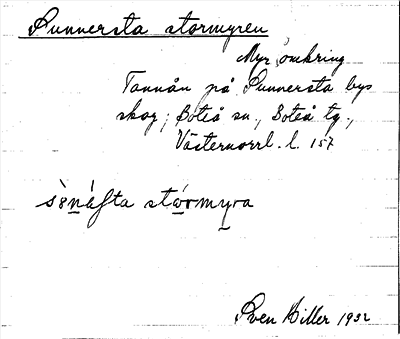 Sunnersta stormyren
Myr, omkring
Tannån på Sunnersta bys
skog; Boteå sn., Boteå tg.,
Västernorrl. l. 157
stormyra
Sven Hiller 1932